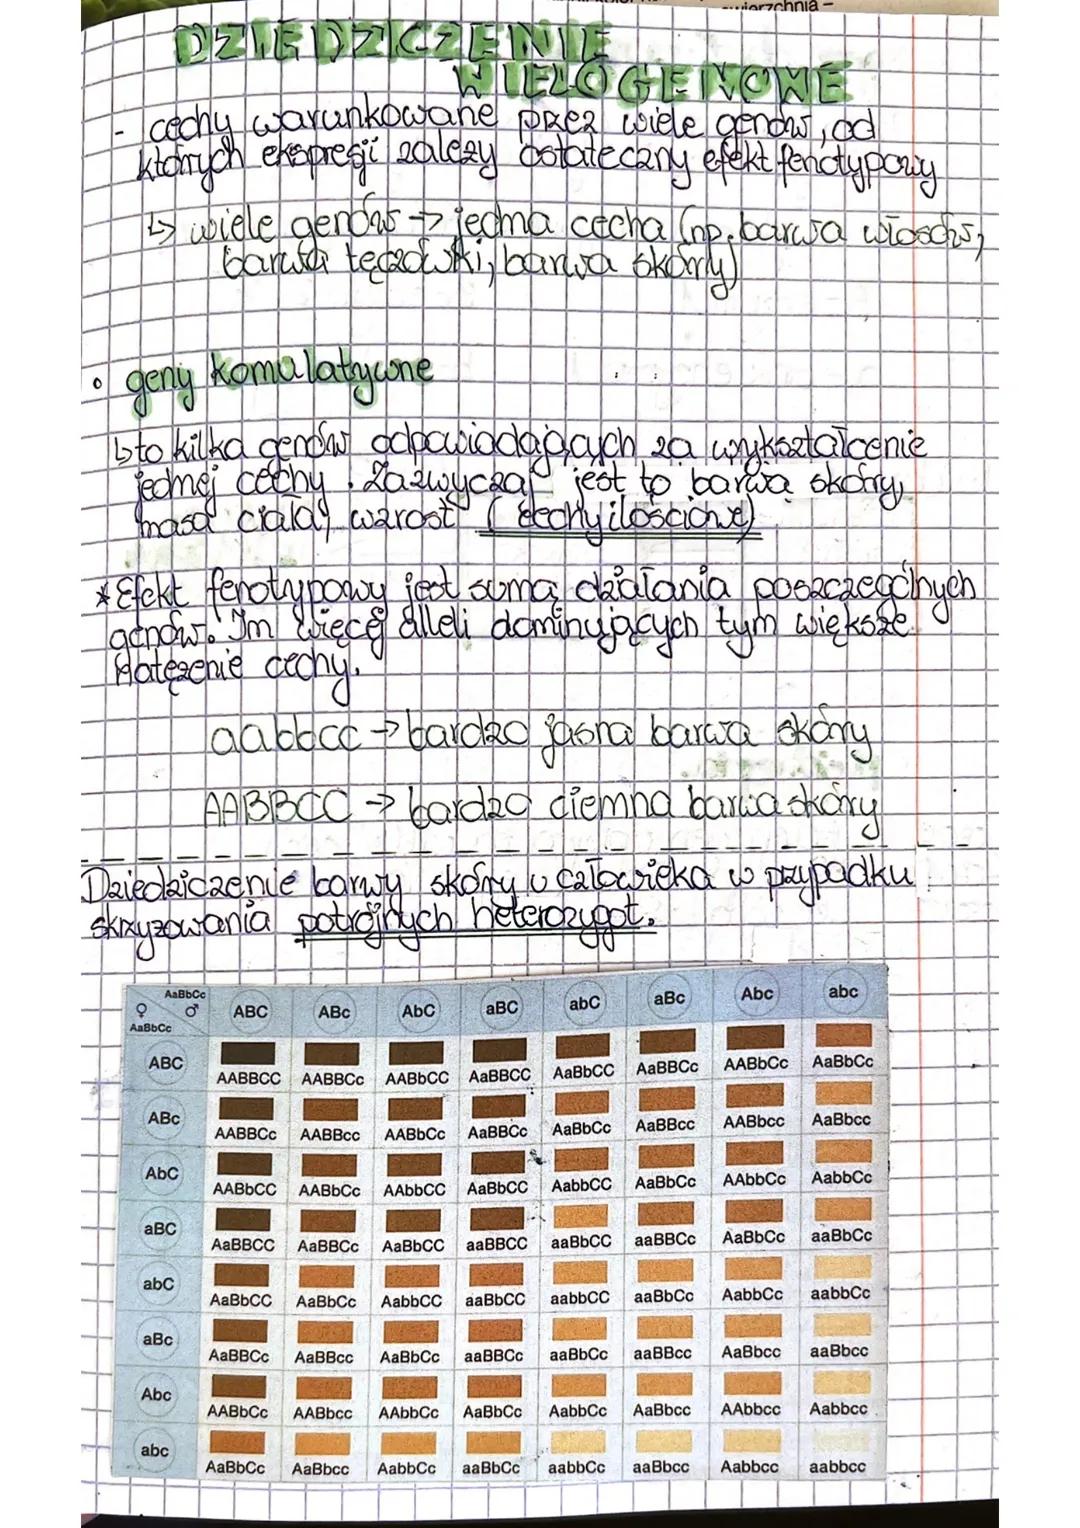 wierzchnia -
DZIEDZICZENIE
WIELOGENOWE
- cechy warunkowane przez wiele genów, od
których ekspresji zależy ostateczny efekt fenotypowy
↳ wiele genów → jedna cecha (np. barwa włosów,
barwa tęczówki, barwa skóry)
• geny komulatywne
↳ to kilka genów odpowiadających za wykształcenie
jednej cechy. Zazwyczaj jest to barwa skóry,
masa ciała, wzrost (cechy ilościowe)
* Efekt fenotypowy jest sumą działania poszczególnych
genów. Im więcej alleli dominujących tym większe
natężenie cechy.
aabbcc → bardzo jasna barwa skóry
AABBCC → bardzo ciemna barwa skóry
Dziedziczenie barwy skóry u człowieka w przypadku
skrzyżowania potrójnych heterozygot.
AaBbCc
♀ ♂ ABC ABc AbC aBC abC aBc Abc abc
AaBbCc
ABC AABBCC AABBCc AABbCC AaBBCC AaBbCC AaBBCc AABbCc AaBbCc
ABc AABBCc AABBcc AABbCc AaBBCc AaBbCc AaBBcc AABbcc AaBbcc
AbC AABbCC AABbCc AAbbCC AaBbCC AabbCC AaBbCc AAbbCc AabbCc
aBC AaBBCC AaBBCc AaBbCC aaBBCC aaBbCC aaBBCc AaBbCc aaBbCc
abC AaBbCC AaBbCc AabbCC aaBbCC aabbCC aaBbCc AabbCc aabbCc
aBc AaBBCc AaBBcc AaBbCc aaBBCc aaBbCc aaBBcc AaBbcc aaBbcc
Abc AABbCc AABbcc AAbbCc AaBbCc AabbCc AaBbcc AAbbcc Aabbcc
abc AaBbCc AaBbcc AabbCc aaBbCc aabbCc aaBbcc Aabbcc aabbcc